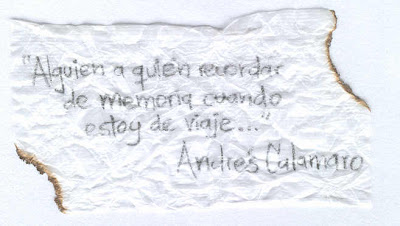 "Alguien a quién recordar
de memoria cuando
estoy de viaje..."
Andrés Calamaro